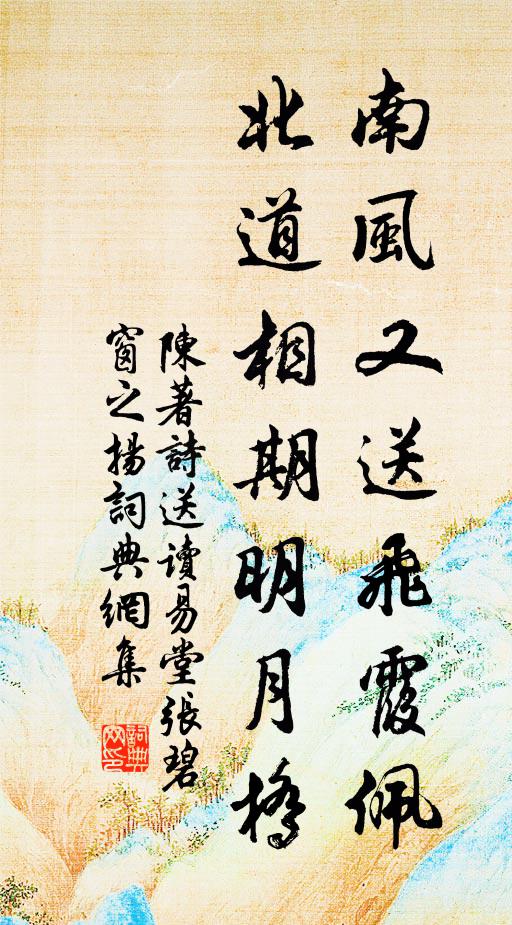 南風又送飛霞佩
北道相期明月橋
陳著詩送讀易堂張碧
窗之揚詞典網集
詞典
网印